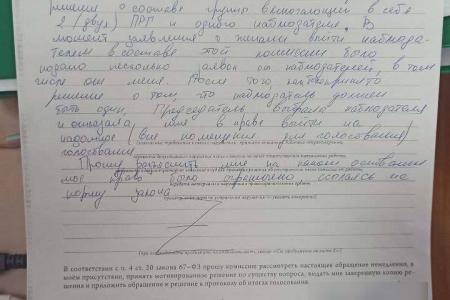 решения о составе группы включающей в себя
2 (двух) ПРГ и одного наблюдателя. В
момент заявления о желании войти наблюда-
телем в состав этой комиссии было
подано несколько заявок от наблюдателей, в том
числе от меня. После того, как принято
решение о том, что наблюдатель должен
быть один. Председатель выбрала наблюдателя
и отказала мне в праве войти на
надомное (вне помещения для голосования)
голосование
Прошу разъяснить мне на каком основании
мое право было ограничено ссылаясь на
норму закона
В соответствии с п. 4 ст. 20 закона 67-ФЗ прошу комиссию рассмотреть настоящее обращение немедленно, в
моём присутствии, принять мотивированное решение по существу вопроса, выдать мне заверенную копию ре-
шения и приложить обращение и решение к протоколу об итогах голосования